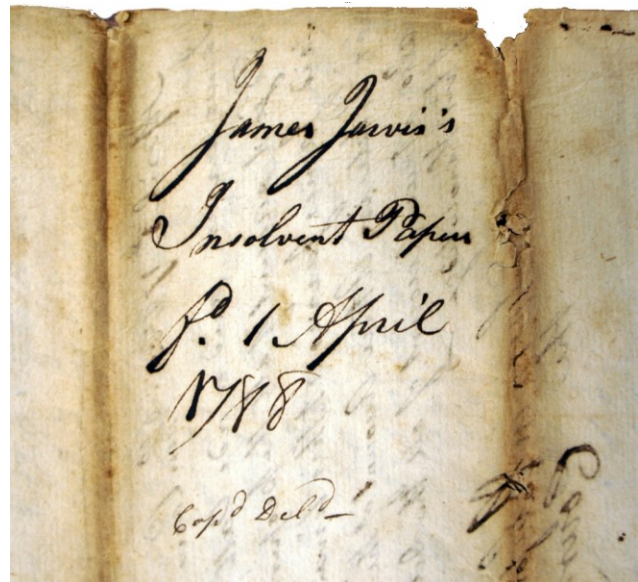 James Jarvis's
Insolvent Papers
fd. 1 April
1788
Cop'd Del'd